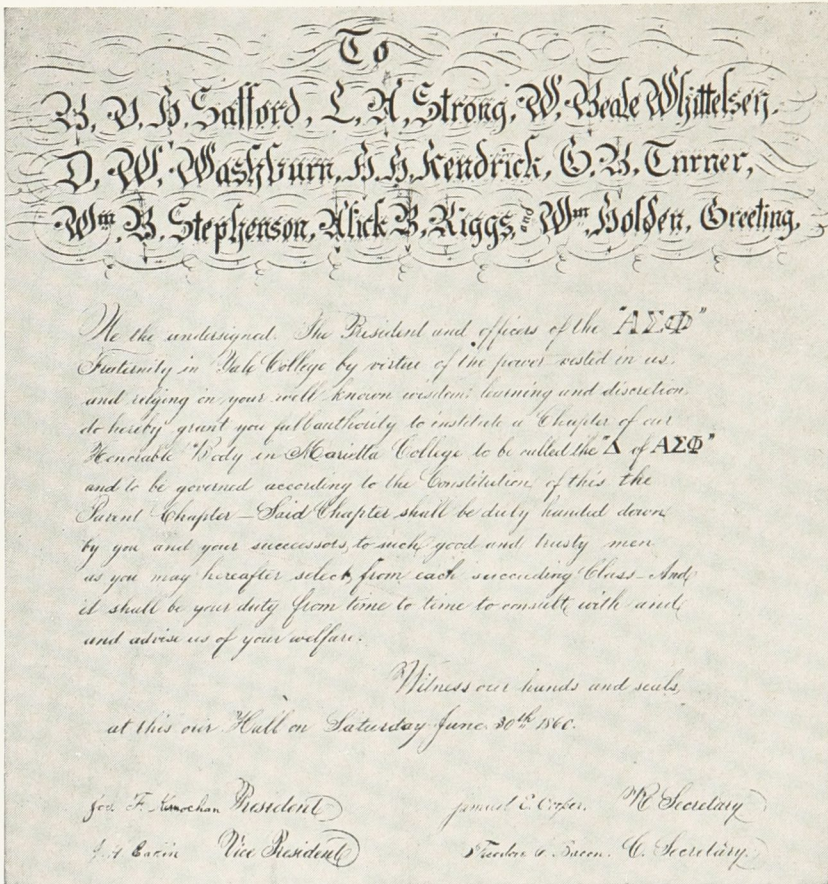 To
B. V. H. Safford, L. A. Strong, W. Beale Whittelsey.
D. W. Washburn, H. H. Kendrick, G. B. Turner,
Wm. B. Stephenson, Alick B. Riggs, and Wm. Holden, Greeting.
We the undersigned. The President and officers of the "ΑΣΦ"
Fraternity in Yale College by virtue of the power vested in us,
and relying on your well known wisdom learning and discretion,
do hereby grant you full authority to institute a Chapter of our
Honorable Body in Marietta College to be called the "Δ of ΑΣΦ"
and to be governed according to the Constitution of this the
Parent Chapter – Said Chapter shall be duly handed down
by you and your successors, to such good and trusty men
as you may hereafter select, from each succeeding Class – And
it shall be your duty from time to time to consult with and
and advise us of your welfare.
Witness our hands and seals,
at this our Hall on Saturday June 30th 1860.
Jos. F. Kernochan President Samuel E. Cooper. R Secretary
Vice President Theodore Bacon. C. Secretary.